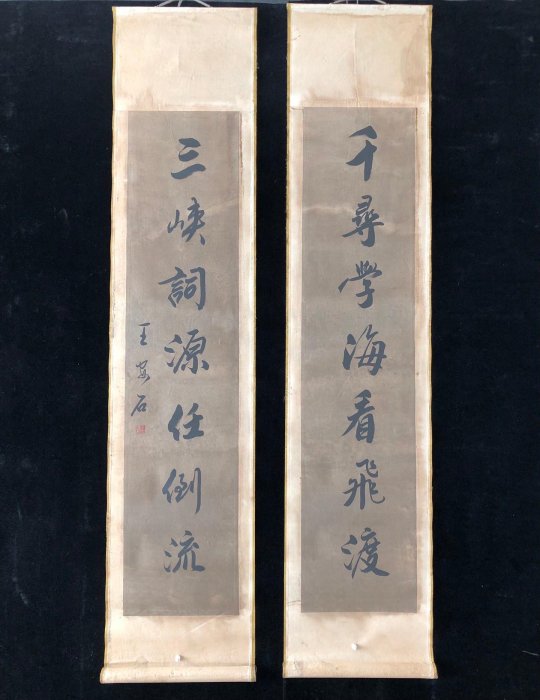 千尋學海看飛渡
三峽詞源任倒流
王安石